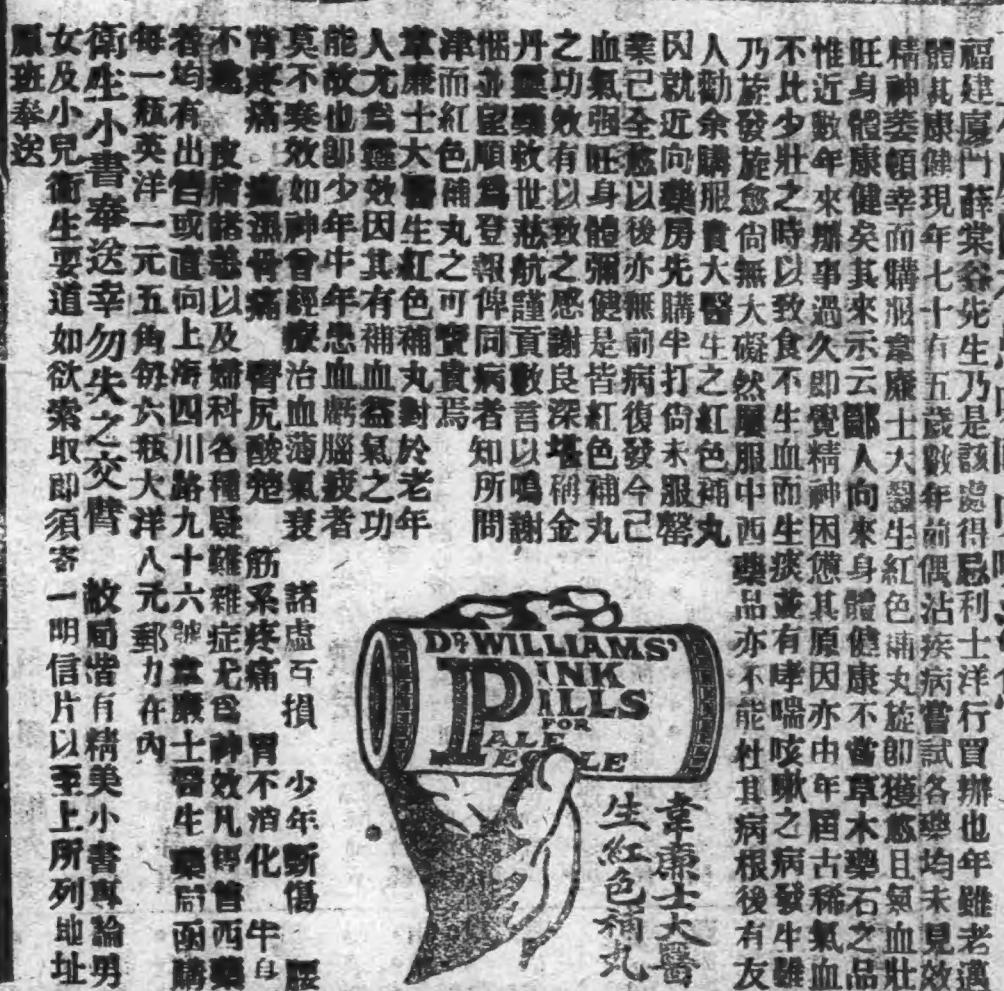 福建廈門薛棠谷先生乃是該處得忌利士洋行買辦也年雖老邁
體其康健現年七十有五歲數年前偶沾疾病嘗試各藥均未見效
精神萎頓幸而購服韋廉士大醫生紅色補丸旋即獲愈且氣血壯
旺身體康健矣其來示云鄙人向來身體健康不嘗草木藥石之品
惟近數年來辦事過久即覺精神困憊其原因亦由年屆古稀氣血
不比少壯之時以致食不生血而生痰並有哮喘咳嗽之病發生雖
乃旋發旋愈尙無大礙然屢服中西藥品亦不能杜其病根後有友
人勸余購服貴大醫生之紅色補丸
因就近向藥房先購半打尙未服罄
業已全愈以後亦無前病復發今已
血氣强旺身體彌健是皆紅色補丸
之功效有以致之感謝良深堪稱金
丹靈藥救世慈航謹貢數言以鳴謝
悃並望順爲登報俾同病者知所問
津而紅色補丸之可寶貴焉
韋廉士大醫生紅色補丸對於老年
人尤爲靈效因其有補血益氣之功
能故也卽少年中年患血虧腦疲者
莫不奏效如神曾經療治血薄氣衰 諸虛百損 少年斲傷 腰
背疼痛 瘋濕骨痛 臀尻酸楚 筋系疼痛 胃不消化 半身
不遂 皮膚諸恙以及婦科各種疑難雜症尤爲神效凡經售西藥
者均有出售或直向上海四川路九十六號韋廉士醫生藥局函購
每一瓶英洋一元五角每六瓶大洋八元郵力在內
衛生小書奉送幸勿失之交臂 敝局皆有精美小書專論男
女及小兒衛生要道如欲索取即須寄一明信片以至上所列地址
原班奉送
DR WILLIAMS'
PINK
PILLS
FOR
PALE
PEOPLE
韋廉士大醫
生紅色補丸